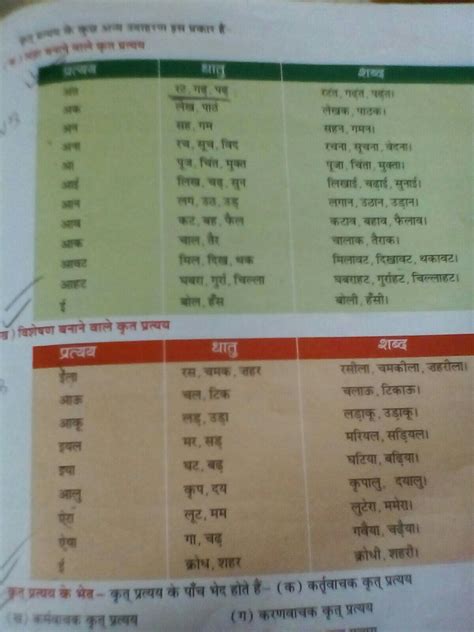 कृत् प्रत्यय के कुछ अन्य उदाहरण इस प्रकार हैं-
(क) संज्ञा बनाने वाले कृत प्रत्यय
प्रत्यय धातु शब्द
अंत रट, गढ़, पढ़ रटंत, गढ़ंत, पढ़ंत।
अक लेख, पाठ लेखक, पाठक।
अन सह, गम सहन, गमन।
अना रच, सूच, विद रचना, सूचना, वेदना।
आ पूज, चिंत, मुक्त पूजा, चिंता, मुक्ता।
आई लिख, चढ़, सुन लिखाई, चढ़ाई, सुनाई।
आन लग, उठ, उड़ लगान, उठान, उड़ान।
आव कट, बह, फैल कटाव, बहाव, फैलाव।
आक चाल, तैर चालाक, तैराक।
आवट मिल, दिख, थक मिलावट, दिखावट, थकावट।
आहट घबरा, गुर्रा, चिल्ला घबराहट, गुर्राहट, चिल्लाहट।
ई बोल, हँस बोली, हँसी।
ख) विशेषण बनाने वाले कृत प्रत्यय
प्रत्यय धातु शब्द
ईला रस, चमक, ज़हर रसीला, चमकीला, ज़हरीला।
आऊ चल, टिक चलाऊ, टिकाऊ।
आकू लड़, उड़ा लड़ाकू, उड़ाकू।
इयल मर, सड़ मरियल, सड़ियल।
इया घट, बढ़ घटिया, बढ़िया।
आलु कृप, दय कृपालु, दयालु।
ऐरा लूट, मम लुटेरा, ममेरा।
ऐया गा, चढ़ गवैया, चढ़ैया।
ई क्रोध, शहर क्रोधी, शहरी।
कृत् प्रत्यय के भेद– कृत् प्रत्यय के पाँच भेद होते हैं– (क) कर्तृवाचक कृत् प्रत्यय
(ख) कर्मवाचक कृत् प्रत्यय (ग) करणवाचक कृत् प्रत्यय